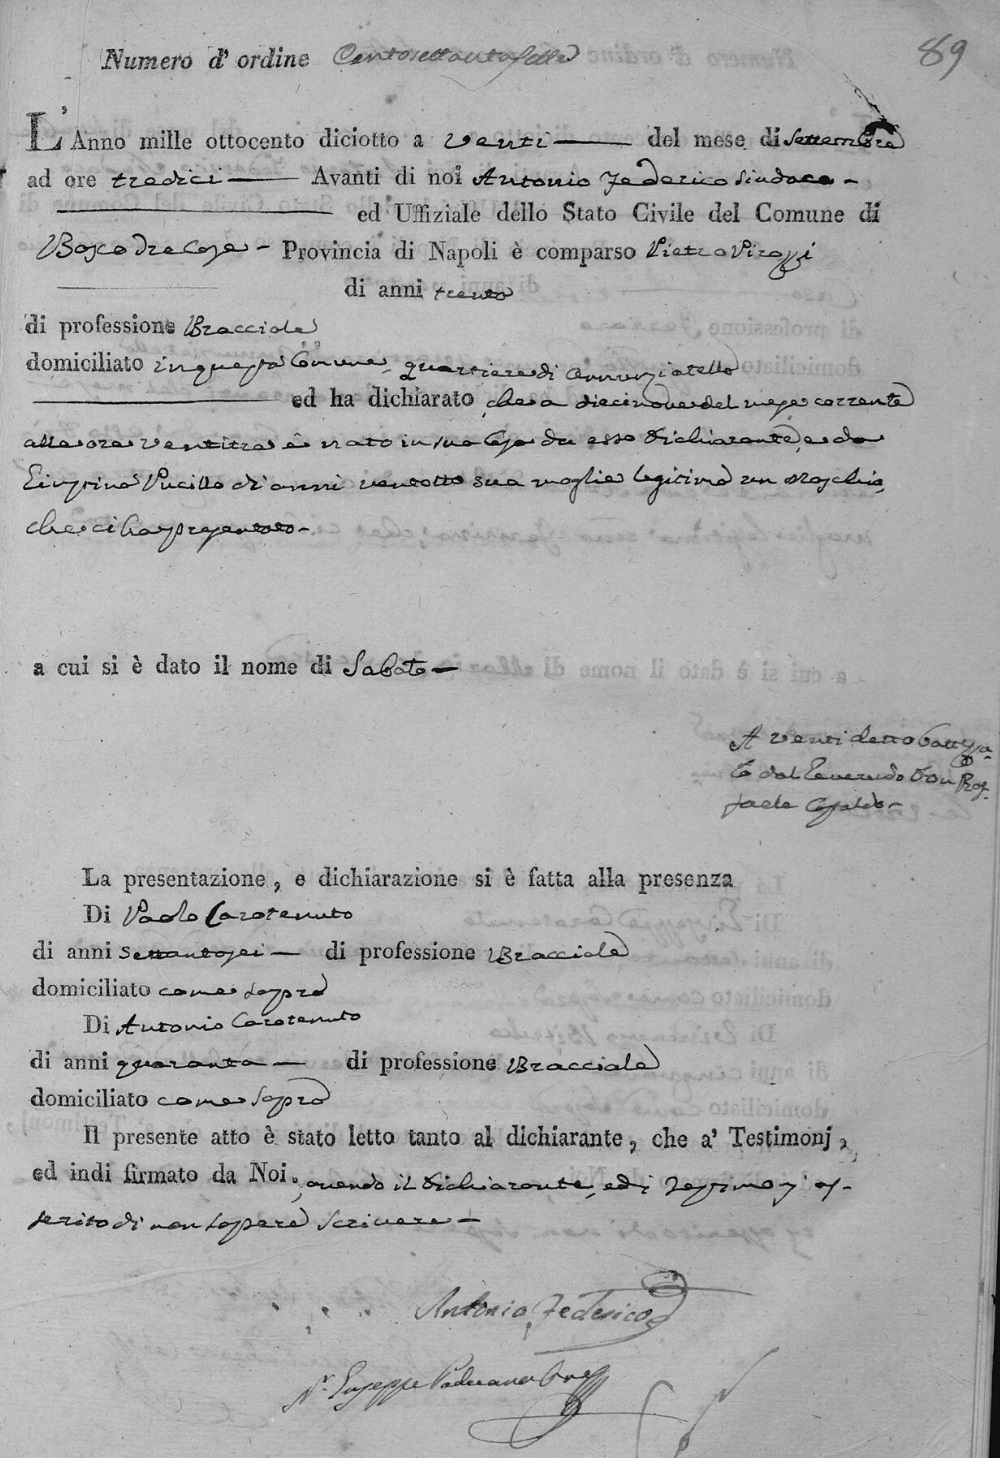 89
Numero d' ordine Centosettantasette
L'Anno mille ottocento diciotto a venti del mese di Settembre
ad ore tredici Avanti di noi Antonio Federico Sindaco
ed Uffiziale dello Stato Civile del Comune di
Bosco tre Case Provincia di Napoli è comparso Pietro Virozzi
di anni trenta
di professione Bracciale
domiciliato in questa Comune, quartiere di Annunziatella
ed ha dichiarato che a diecinove del mese corrente
alle ore ventitre è nato in sua casa da esso Dichiarante, e da
Pucillo di anni ventotto sua moglie legitima un Maschio,
che ci ha presentato
a cui si è dato il nome di Sabato
A venti detto battezza-
to dal Reverendo Don Raf-
faele
La presentazione, e dichiarazione si è fatta alla presenza
Di Paolo Carotenuto
di anni settantasei di professione Bracciale
domiciliato come sopra
Di Antonio Carotenuto
di anni quaranta di professione Bracciale
domiciliato come sopra
Il presente atto è stato letto tanto al dichiarante, che a' Testimonj,
ed indi firmato da Noi, avendo il Dichiarante, ed i Testimonj as-
serito di non sapere scrivere
Antonio Federico
Giuseppe